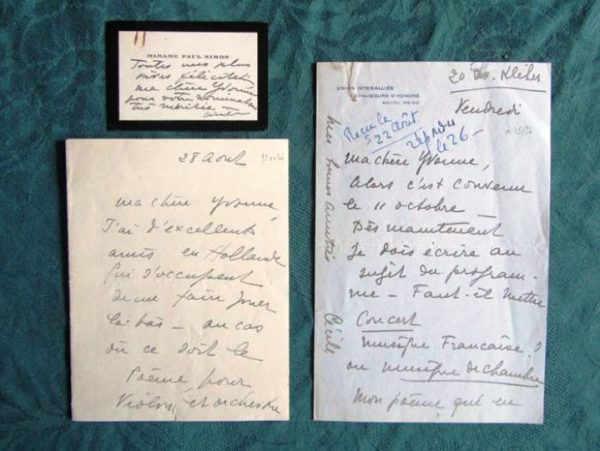 MADAME PAUL SIMON
Toutes mes plus
vives félicitations
ma chère Yvonne
pour votre nomination
très méritée
28 Août
Ma chère Yvonne,
J'ai d'excellents
amis en Hollande
qui s'occupent
de me faire jouer
là-bas – au cas
où ce soit le
Poème pour
Violon, et orchestre
20 Av. Kléber
UNION INTERALLIÉE
FAUBOURG ST HONORÉ
Vendredi
Reçu le
22 août
répondu
le 26 –
Ma chère Yvonne,
Alors c'est convenu
le 11 octobre –
Dès maintenant
Je dois écrire au
sujet du program-
me – Faut-il mettre
Concert
Musique Française ?
ou musique de chambre
Mon poème qui en
mes bonnes amitiés Cécile